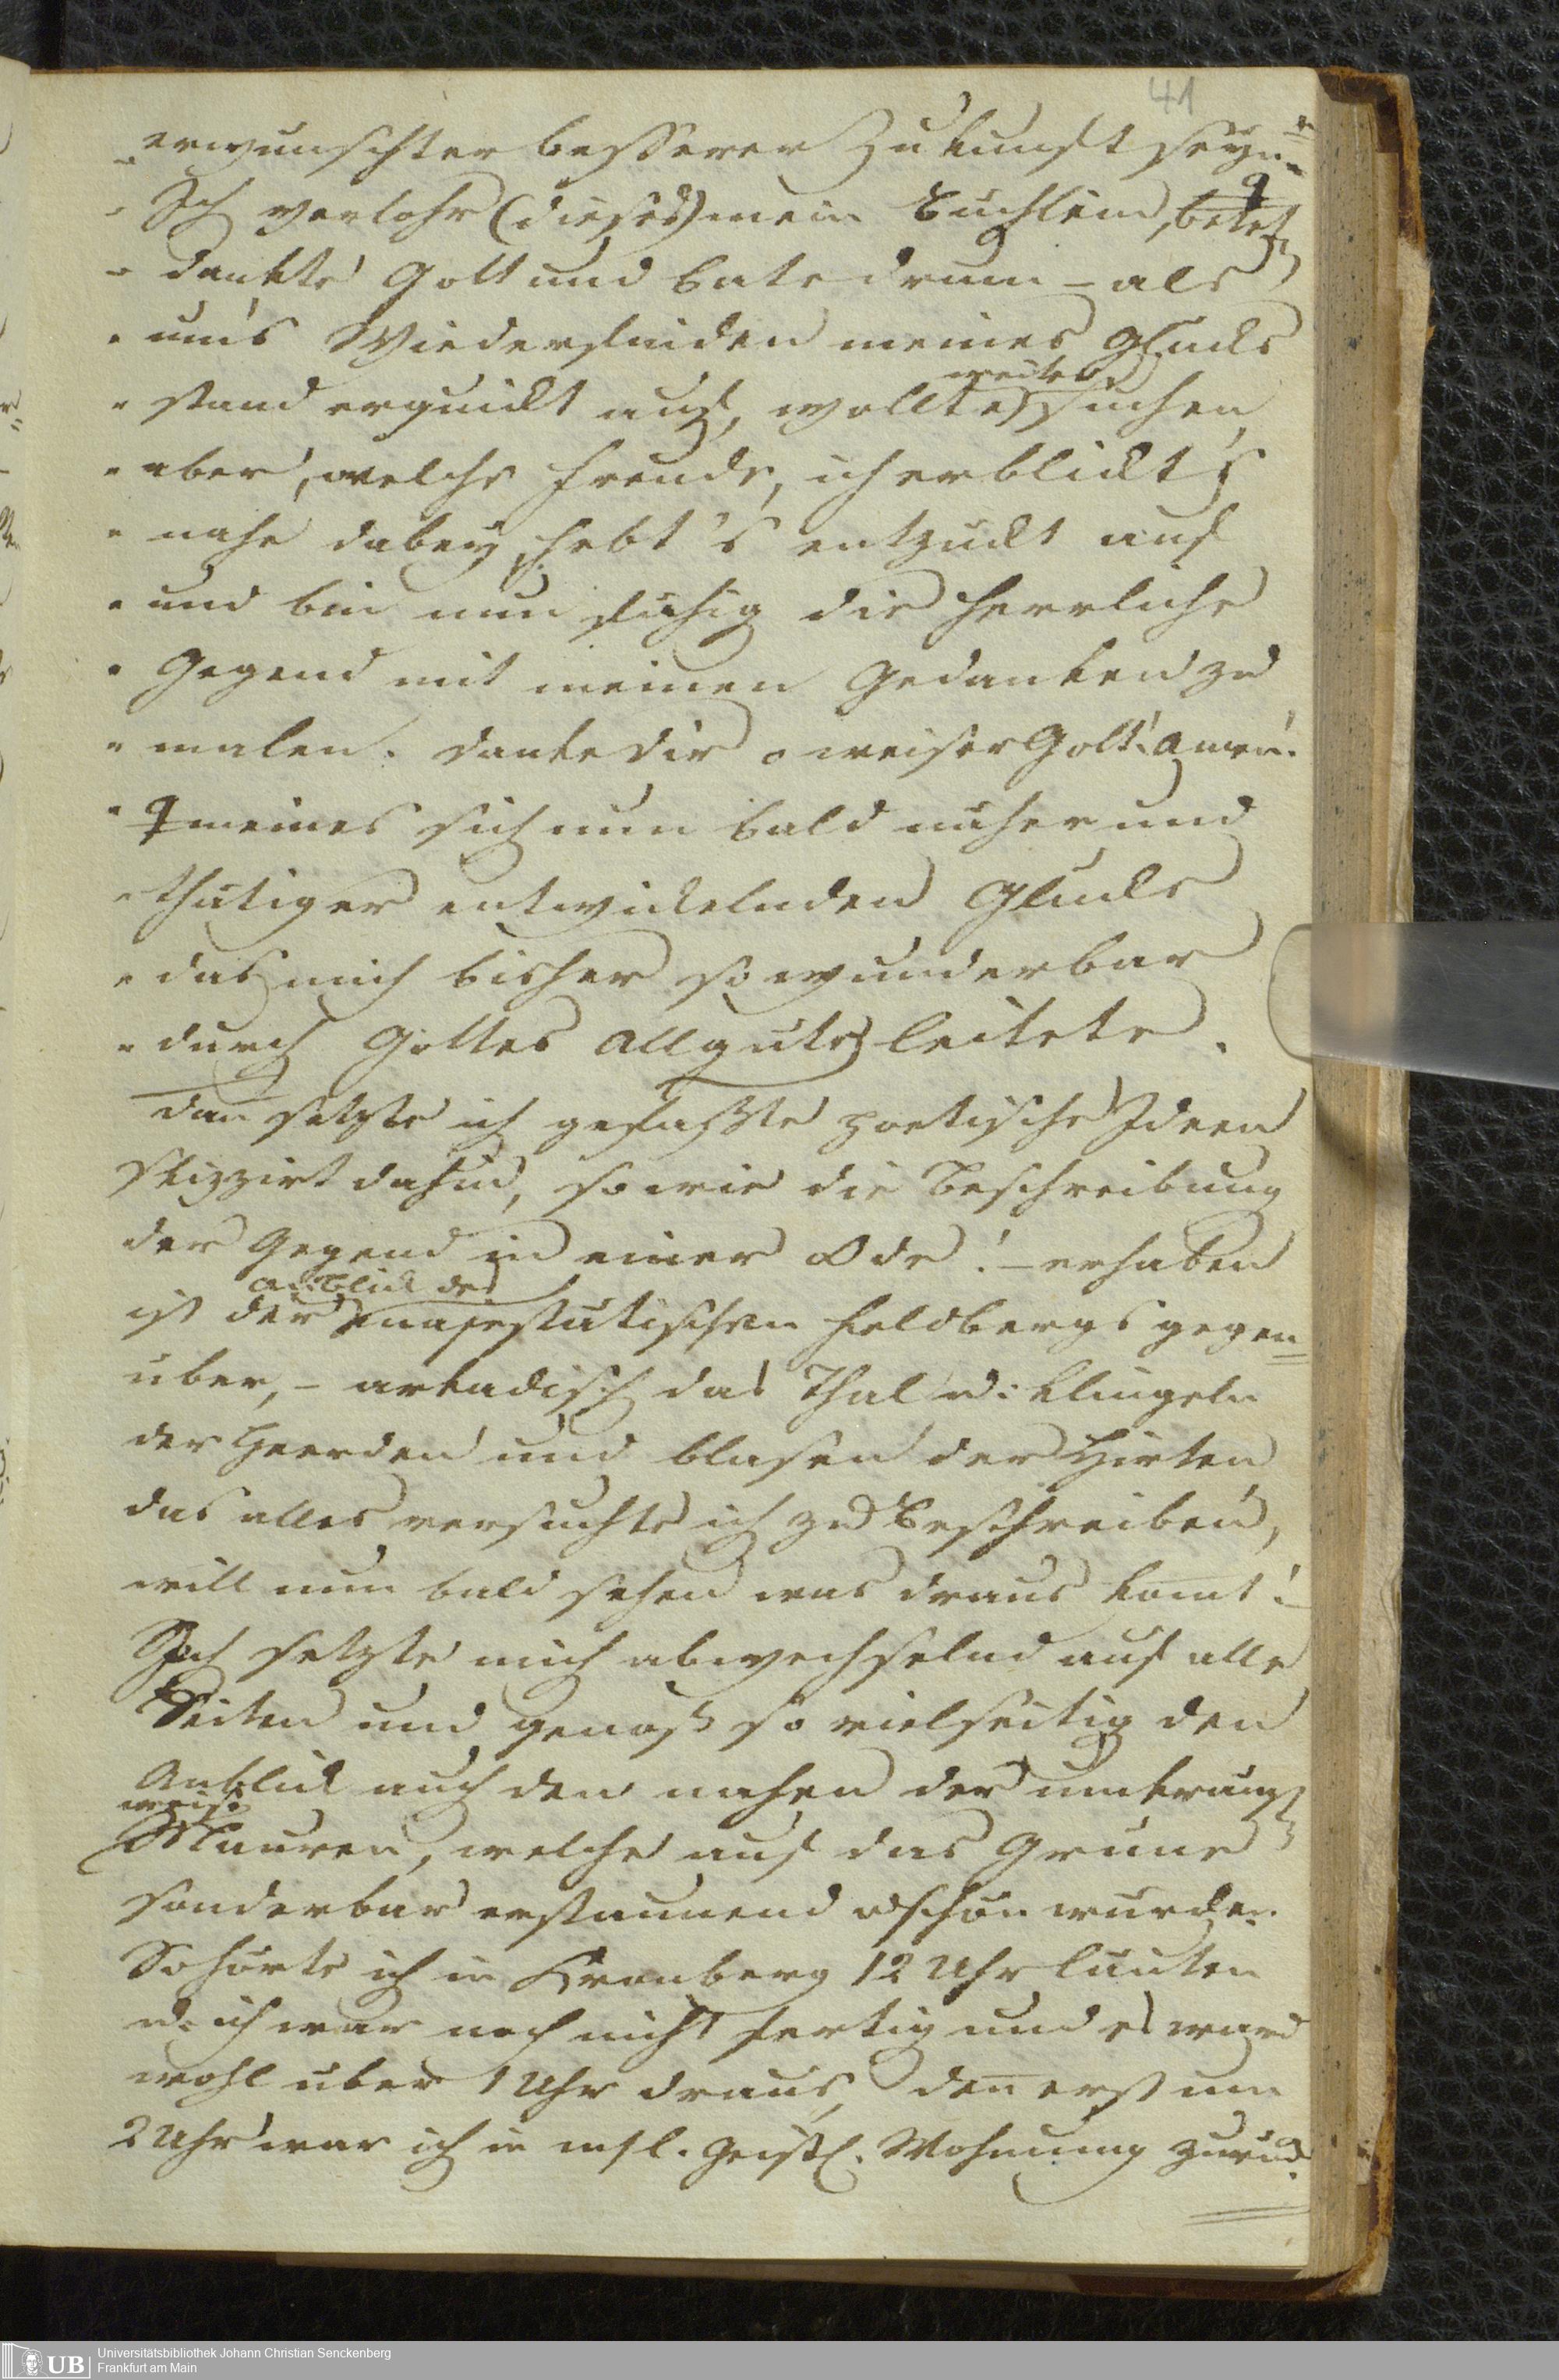 41
„erwünschter besserer Zukunft seyn.„
„Ich verlohr (dieses) mein Büchlein, betet
„dankte Gott und bate drum – als
„um's Wiederfinden meines Glücks
„stand erquickt auf, wollte weiter suchen,
„aber, welche Freude, ich erblickt's
„nahe dabey, hebt's entzückt auf
„und bin nun fähig die herrliche
„Gegend mit meinen Gedanken zu
„malen. Danke dir o weiser Gott! Amen!
„meines sich nun bald näher und
„thätiger entwickelnden Glücks
„das mich bisher so wunderbar
„durch Gottes Allgüte leitete.
dan setzte ich gefaßte poetische Ideen
skizzirt dahin, so wie die Beschreibung
der Gegend in einer Ode! – erhaben
ist der Anblick des majestätischen Feldbergs gegen=
über, – arkadisch das Thal u: Klingeln
der Heerden und blasen der Hirten
das alles versuchte ich zu Beschreiben,
will nun bald sehen was draus komt!
Ich setzte mich abwechselnd auf alle
Seiten und genoß so vielseitig den
Anblick auch den nahen der
weisen Mauren, welche auf das Grüne
sonderbar erstaunend schön wurden.
So hörte ich in Kronberg 12 Uhr läuten
u. ich war noch nicht fertig und es ward
wohl über 1 Uhr draus, den erst um
2 Uhr war ich in Geistl. Wohnung zurück.
Universitätsbibliothek Johann Christian Senckenberg
Frankfurt am Main
UB